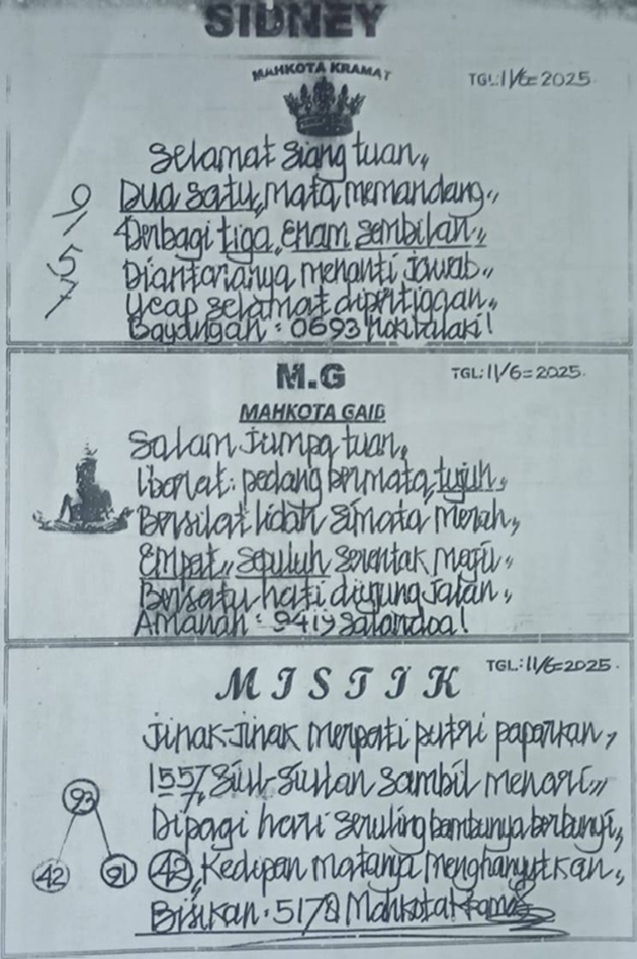 SIDNEY
MAHKOTA KRAMAT
TGL: 11/6=2025.
Selamat Siang tuan,,
Dua satu,, mata memandang,,
9/ Berbagi tiga, enam sembilan,,
5 Diantaranya menanti jawab,,
7 Ucap selamat dipertiggan,,
Bayangan: 0693
M.G
TGL: 11/6=2025.
MAHKOTA GAIB
Salam Jumpa tuan,
Ibarat: pedang bermata, tujuh,,
Bersilat lidah Simata Merah,,
Empat,, sepuluh serentak maju,,
Bersatu hati diujung jalan,,
Amanah: 9419
MISTIK
TGL: 11/6=2025.
Jinak-Jinak merpati putri paparkan,
1557 Siul-Siulan sambil menari,,
Dipagi hari seruling bambunya berbunyi,,
93
42 91 42,, Kedipan matanya menghanyutkan,,
Bisikan: 5178 Mahkota Kramat